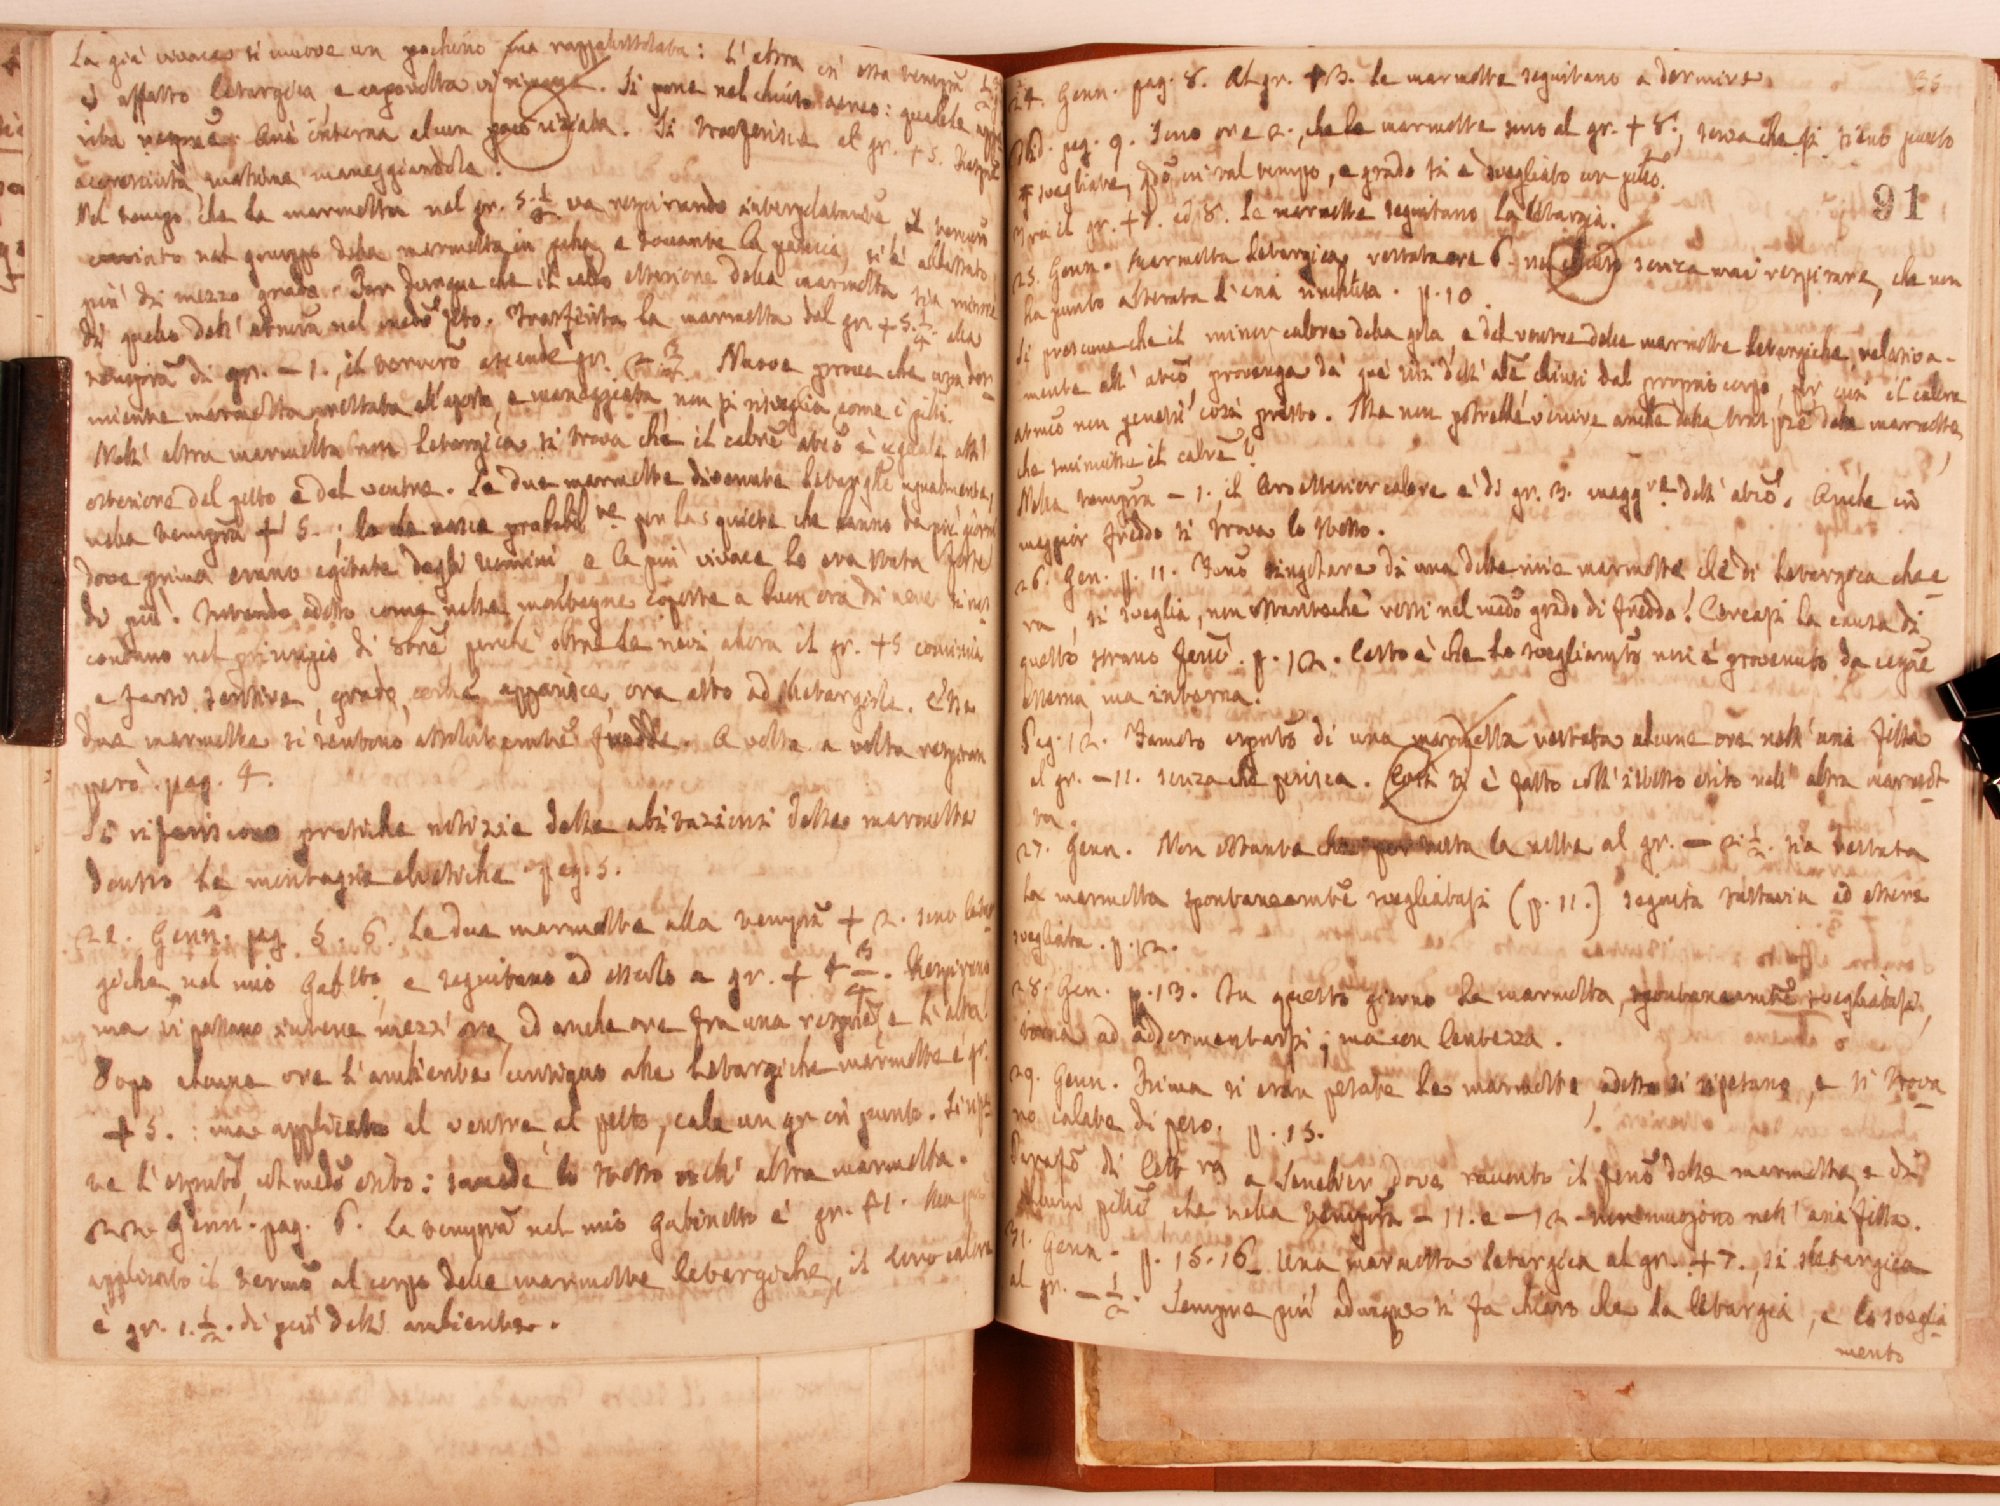 La più vivace si muove un pochino ma rappallottolata: L'altra in essa tempra
è affatto letargica, e capovolta vi rimane. Si pone nel chiuso aereo: qualche
respire. Aria interna alcun poco viziata. Si trasferisce al gr. + 5. Respire
accresciuta maneggiandola.
Nel tempo che la marmotta nel gr. 5. 1/2 va respirando il termom
nel gruppo della marmotta in gola, e toccante la pancia, si è abbassato
più di mezzo grado. Par dunque che il calor esteriore della marmotta sia minore
di quello dell' atmosra nel medo sito. Trasferita la marmotta dal gr. + 5. alla
tempra di gr. - 1., il termro ascende gr. 2 Nuove prove che una dor
miente marmotta portata all'aperto, e maneggiata non si risveglia come i pilli.
Nell' altra marmotta non letargica si trova che il calore è eguale all'
esteriore del petto e del ventre. Le due marmotte divenute letargiche ugualmente,
nella tempra + 5. ; lo che nasce probabilme per la quiete che hanno da più giorni
dove prima erano agitate dagli uomini, e la più vivace lo era stata forse
di più. Intendo adesso come nelle montagne coperte a buon'ora di neve si nas
condano nel principio di 8bre, perchè oltre le nevi allora il gr. + 5 comincia
a farsi sentire, grado, come apparisce, ora atto ad iletargirle. Esse
due marmotte si sentono assolutamente fredde. A volta a volta respiran
però. pag. 4.
Si riferiscono pratiche notizie delle abitazioni delle marmotte
dentro le montagne elvetiche pag. 5.
21. Genn. pag. 5. 6. Le due marmotte alla tempra + 2. sono letar
giche nel mio Gabtto, e seguitano ad esserlo a gr. + 4 3/4. Respirano
ma si passano intere mezz' ore, ed anche ore fra una respire, e l'altra.
Dopo alcune ore l'ambiente contiguo alle letargiche marmotte è gr.
+ 5. : ma applicato al ventre, al petto, cala un gr in punto. Si ripe
te l'esprto, col medo esito: succede lo stesso nell' altra marmotta.
22. Genn. pag. 6. La tempra nel mio Gabinetto è gr. + 1.
applicato il termo al corpo delle marmotte letargiche, il loro calore
è gr. 1. 1/2. di più dell' ambiente.
35
24. Genn. pag. 8. Al gr. + 3. Le marmotte seguitano a dormire
Ibid. pag. 9. Sono ore 2., che le marmotte sono al gr. + 8., senza che si sieno punto
svegliate, però in tal tempo, e grado si è svegliato un pillo.
Tra il gr. + 7. ed 8. Le marmotte seguitano la letargia.
91
25. Genn. Marmotta letargica restata ore 6. nel chiuso senza mai respirare, che non
ha punto alterata l'aria rinchiusa. p. 10.
Si presume che il minor calore della gola, e del ventre delle marmotte letargiche relativa-
mente all' atmco, provenga da chiusi dal proprio corpo, per cui il calore
atmco non penetri così presto. Ma non potrebbe venire anche dalla delle marmotte,
che sminuisse il calore?
Nella tempra - 1. il loro esterior calore è di gr. 3. maggre dell' atmco. Anche in
maggior freddo si trova lo stesso.
26. Gen. p. 11. Feno singolare di una delle mie marmotte che di letargica che e
ra, si sveglia, non ostantechè resti nel medo grado di freddo! Cercasi la causa di
questo strano feno. p. 12. Certo è che lo svegliamto non è provenuto da cagione
esterna, ma interna.
Pag. 12. Famoso esprto di una marmotta restata alcune ore nell' aria fissa
al gr. - 11. senza che perisca. Così si è fatto coll' istesso esito nell' altra marmot-
ta.
27. Genn. Non ostante che per tutta la notte al gr. - 2. 1/2. sia restata
la marmotta spontaneamte svegliatasi (p. 11.) seguita tuttavia ad essere
svegliata. p. 12.
28. Gen. p. 13. In questo giorno la marmotta, spontaneamte svegliatasi,
torna ad addormentarsi; ma con lentezza.
29. Genn. Prima si eran pesate le marmotte, adesso si ripesano, e si trova
no calate di peso. p. 15.
di lettra a Senebier dove racconto il feno delle marmotte, e di
che nella tempra - 11. e - 12 - non muojono nell' aria fissa.
31. Genn. p. 15. 16. Una marmotta letargica al gr. + 7., si sletargica
al gr. - 1/2. Sempre più adunque si fa chiaro che la letargia, e lo sveglia
mento